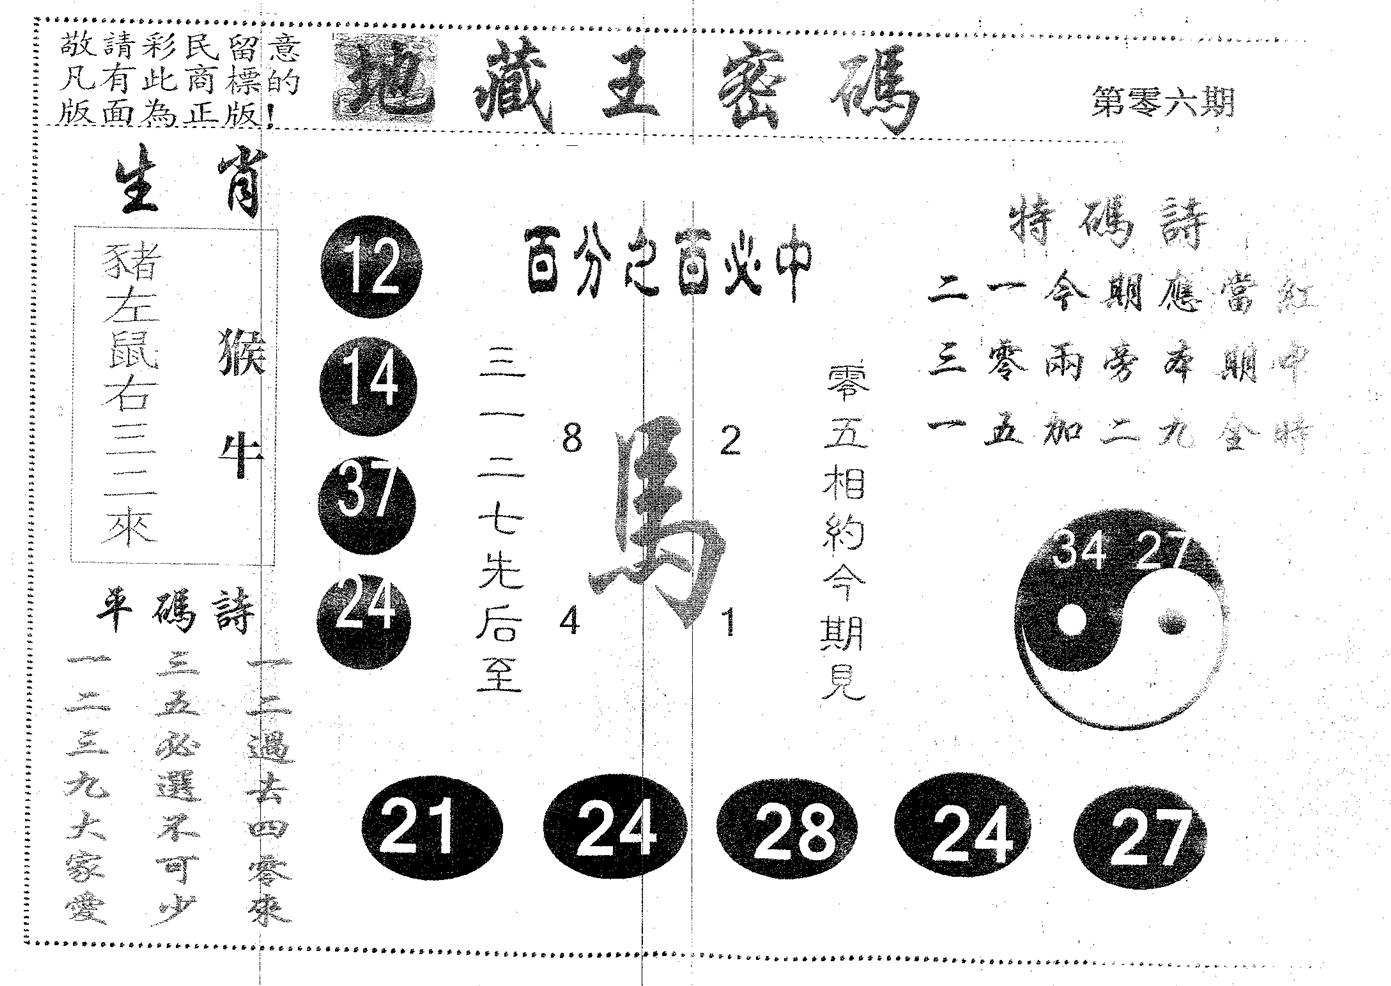 敬請彩民留意
凡有此商標的
版面為正版!
地藏王密碼
第零六期
生肖
豬左鼠右三二來
猴牛
12
14
37
24
百分之百必中
三一二七先后至
8
2
馬
4
1
零五相約今期見
特碼詩
二一今期應當紅
三零兩旁本期中
一五加二九全特
34 27
平碼詩
一二三九大家愛
三五必選不可少
一二過去四零來
21
24
28
24
27